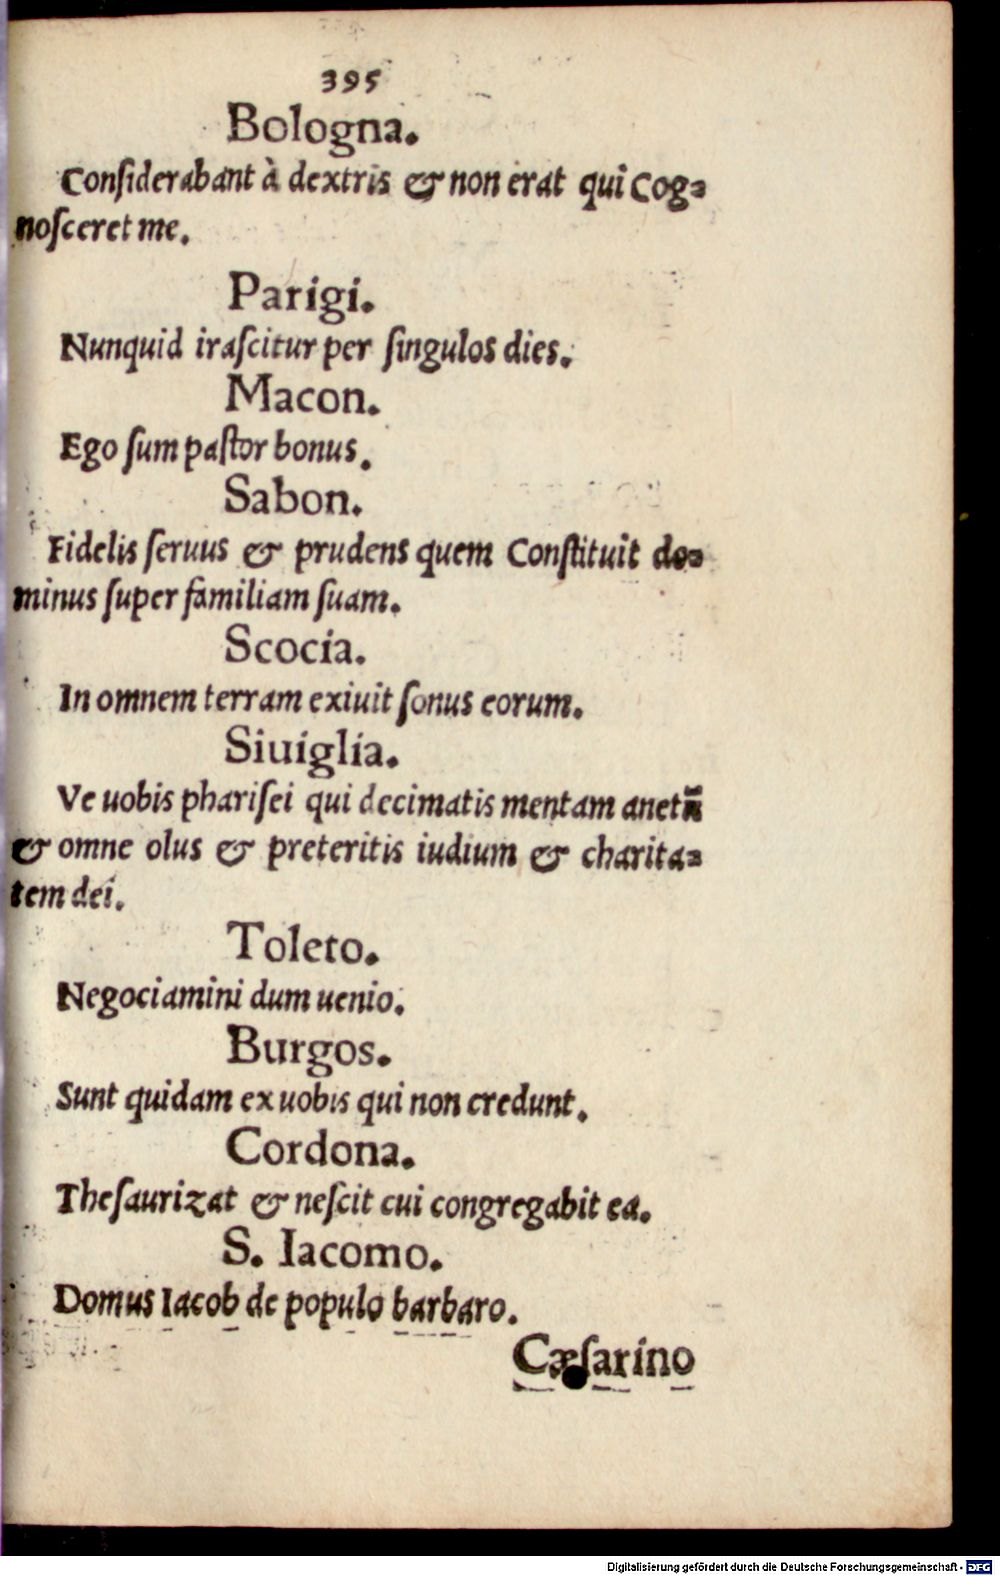 395
Bologna.
Conſiderabant à dextris & non erat qui Cog=
noſceret me.
Parigi.
Nunquid iraſcitur per ſingulos dies.
Macon.
Ego ſum paſtor bonus.
Sabon.
Fidelis ſeruus & prudens quem Conſtituit do=
minus ſuper familiam ſuam.
Scocia.
In omnem terram exiuit ſonus eorum.
Siuiglia.
Ve uobis phariſei qui decimatis mentam anetũ
& omne olus & preteritis iudium & charita=
tem dei.
Toleto.
Negociamini dum uenio.
Burgos.
Sunt quidam ex uobis qui non credunt.
Cordona.
Theſaurizat & neſcit cui congregabit ea.
S. Iacomo.
Domus Iacob de populo barbaro.
Cæſarino
Digitalisierung gefördert durch die Deutsche Forschungsgemeinschaft - DFG